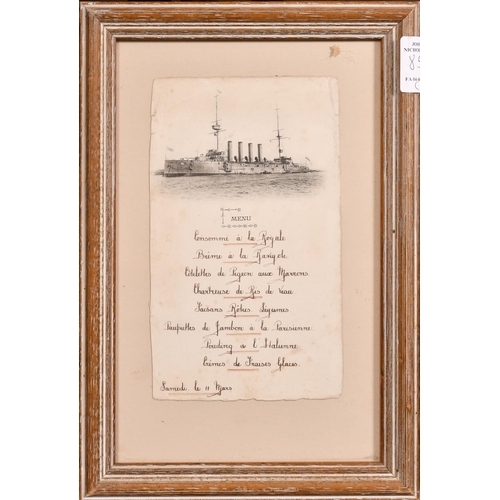 MENU
Consommé à la Royale
Brème à la Ravigote
Côtelettes de Pigeon aux Marrons
Chartreuse de Ris de Veau
Faisans Rôties Légumes
Paupiettes de Jambon à la Parisienne
Pouding à l'Italienne
Crèmes de Fraises Glaces
Samedi le 11 Mars